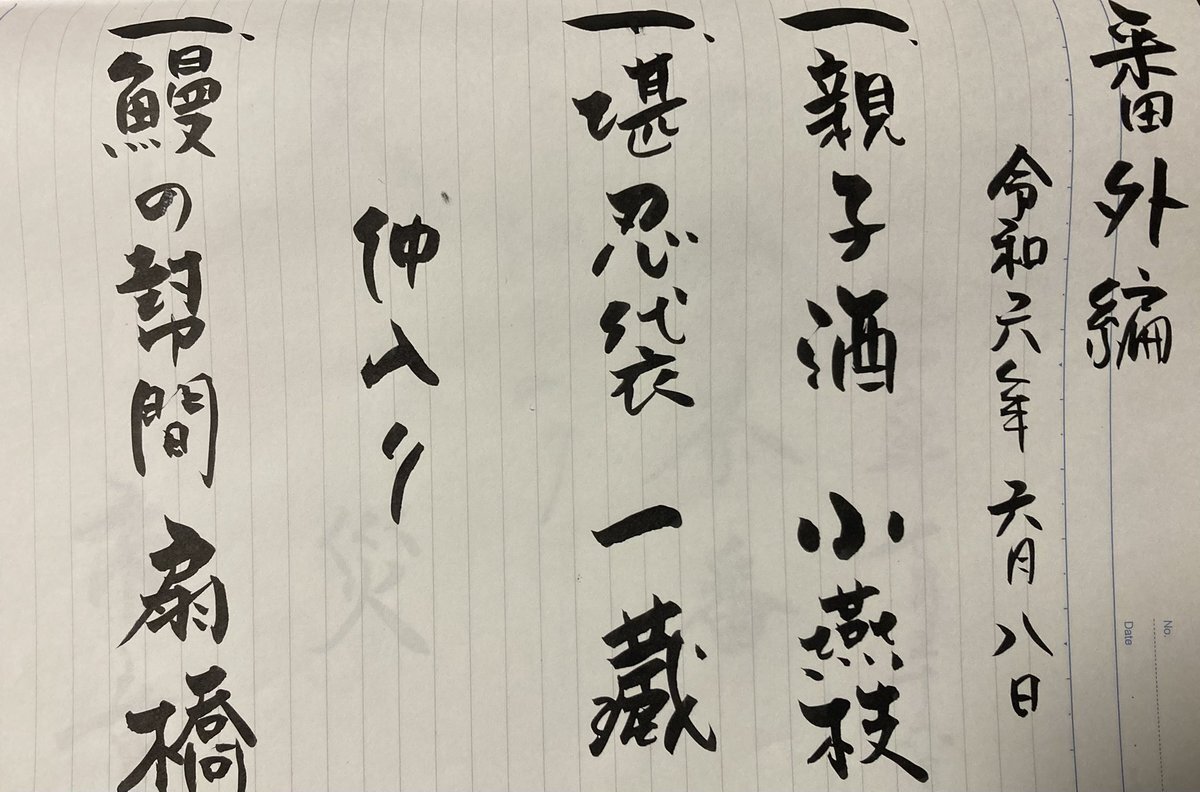 番外編
令和六年 六月八日
一、親子酒 小燕枝
一、堪忍袋 一蔵
仲入り
一、鰻の幇間 扇橋
No.
Date